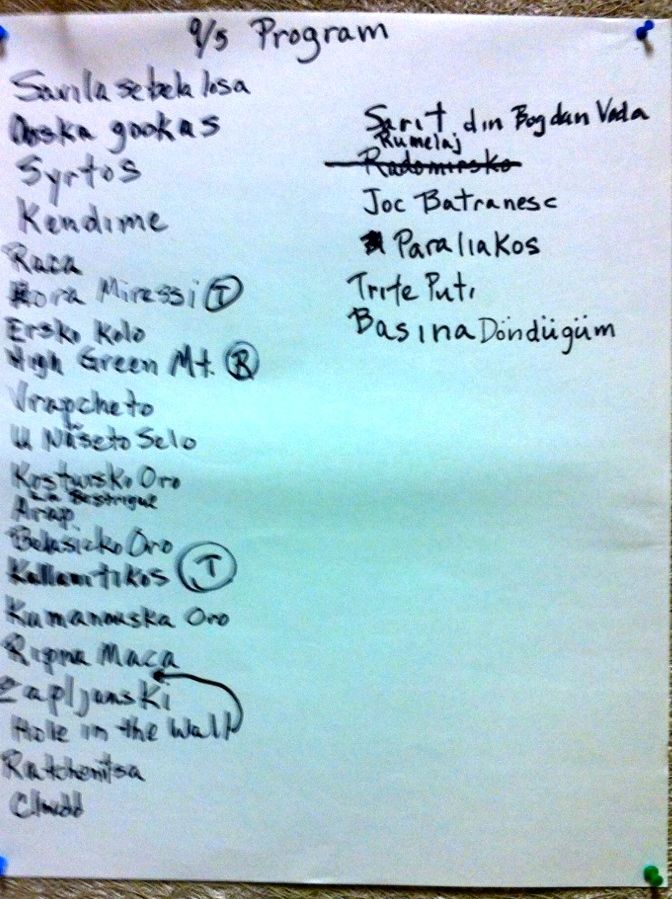 9/5 Program
Savila se bela losa
gookas
Syrtos
Kendime
Raca
Kora Miressi T
Ersko Kolo
High Green Mt. R
Vrapcheto
U Naseto Selo
Kostursko Oro
La Bastrigue
Arap
Belasicko Oro
Kallamtikos T
Kumanovska Oro
Ripna Maca
Zapljanski
Hole in the Wall
Ratchenitsa
Sarit din Bogdan Voda
Rumelaj
Radomirsko
Joc Batranesc
Paraliakos
Trite Puti
Basina Döndügüm